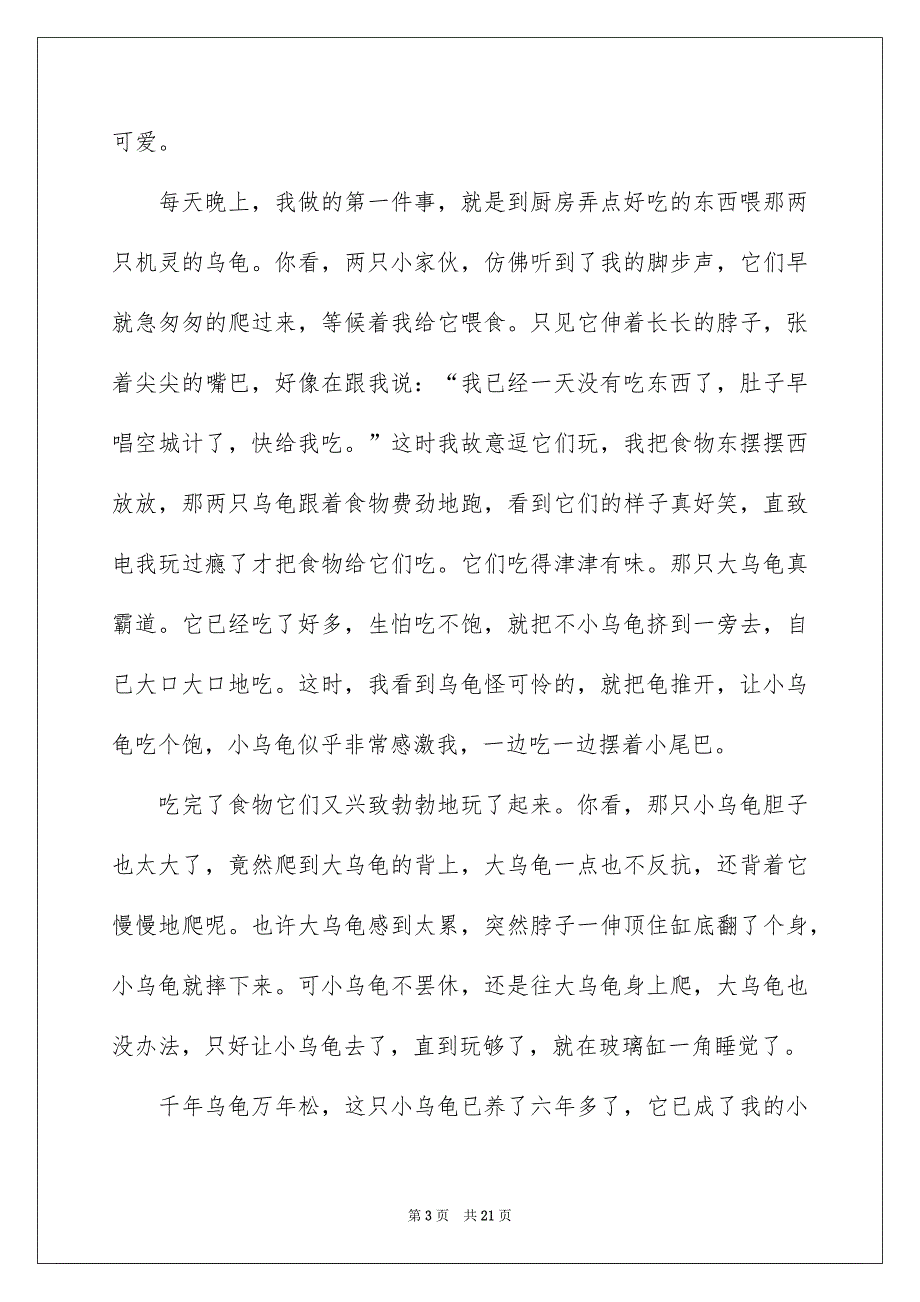 可爱。
每天晚上，我做的第一件事，就是到厨房弄点好吃的东西喂那两
只机灵的乌龟。你看，两只小家伙，仿佛听到了我的脚步声，它们早
就急匆匆的爬过来，等候着我给它喂食。只见它伸着长长的脖子，张
着尖尖的嘴巴，好像在跟我说：“我已经一天没有吃东西了，肚子早
唱空城计了，快给我吃。”这时我故意逗它们玩，我把食物东摆摆西
放放，那两只乌龟跟着食物费劲地跑，看到它们的样子真好笑，直致
电我玩过瘾了才把食物给它们吃。它们吃得津津有味。那只大乌龟真
霸道。它已经吃了好多，生怕吃不饱，就把不小乌龟挤到一旁去，自
己大口大口地吃。这时，我看到乌龟怪可怜的，就把龟推开，让小乌
龟吃个饱，小乌龟似乎非常感激我，一边吃一边摆着小尾巴。
吃完了食物它们又兴致勃勃地玩了起来。你看，那只小乌龟胆子
也太大了，竟然爬到大乌龟的背上，大乌龟一点也不反抗，还背着它
慢慢地爬呢。也许大乌龟感到太累，突然脖子一伸顶住缸底翻了个身，
小乌龟就摔下来。可小乌龟不罢休，还是往大乌龟身上爬，大乌龟也
没办法，只好让小乌龟去了，直到玩够了，就在玻璃缸一角睡觉了。
千年乌龟万年松，这只小乌龟已养了六年多了，它已成了我的小
第 3 页 共 21 页